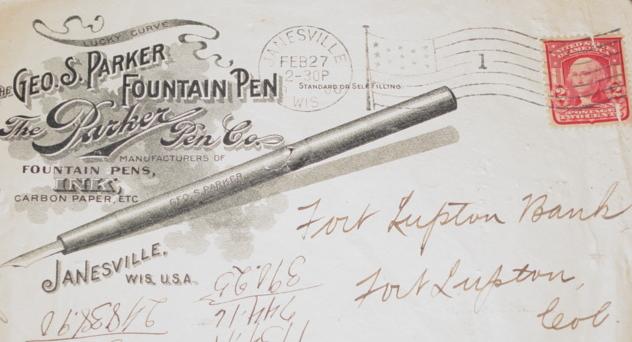 LUCKY CURVE
THE GEO. S. PARKER
FOUNTAIN PEN
The Parker Pen Co.
MANUFACTURERS OF
FOUNTAIN PENS,
INK,
CARBON PAPER, ETC
JANESVILLE,
WIS. U.S.A.
GEO. S. PARKER
STANDARD OR SELF FILLING
JANESVILLE
FEB 27
2-30P
WIS.
1
2 2
POSTAGE
TWO CENTS
Fort Lupton Bank
Fort Lupton,
Col.
398.25
744.16